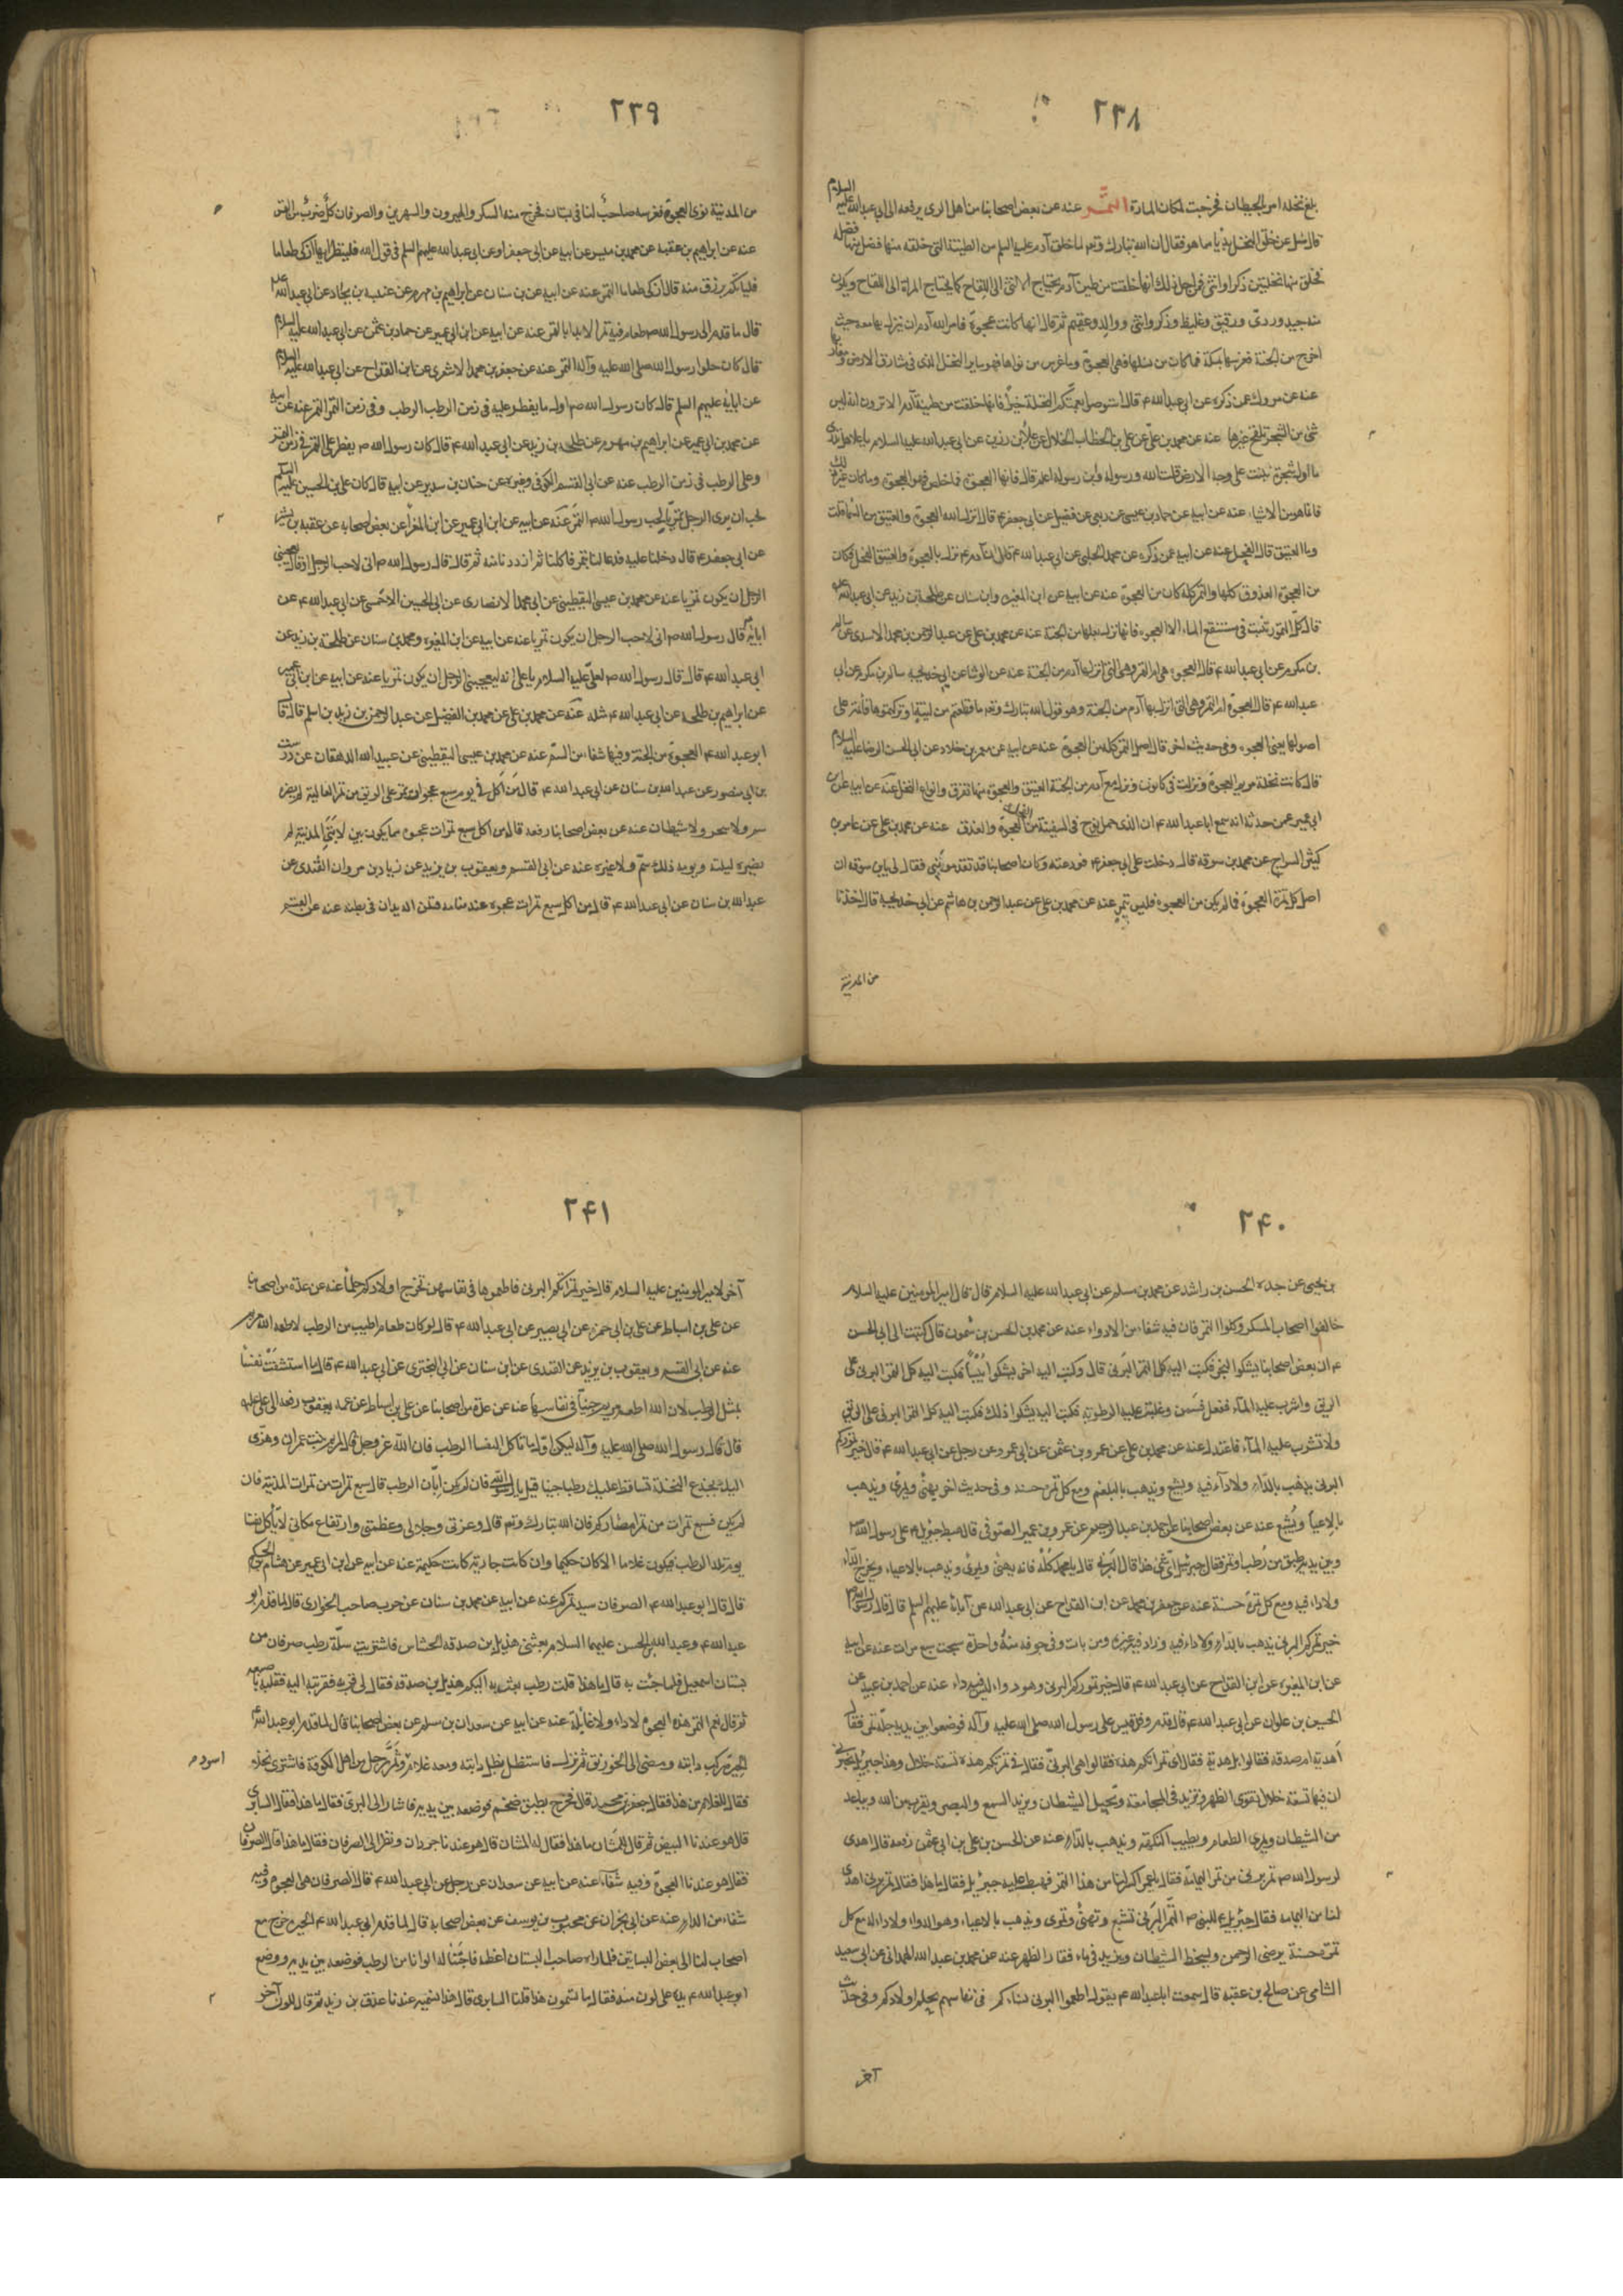 ٢٣٨
بلغ نخله امر بالحيطان فخرجت لمكان المارة التمــر عنه عن بعض اصحابنا من اهل الرى يرفعه الى ابى عبد الله عليه السلام
قال سئل عن خلق النخل بديا ما هو فقال ان الله تبارك وتع لما خلق آدم عليه السلم من الطينة التى خلقه منها فضل منها فضلة
فخلق منها نخلتين ذكرا وانثى فمن اجل ذلك انها خلقت من طين آدم يحتاج الانثى الى اللقاح كما يحتاج المراة الى اللقاح ويكون
منه جيد وردى ودقيق وغليظ وذكر وانثى ووالد وعقيم ثم قال انها كانت عجوة فامر الله آدم ان ينزل بها معه حيث
اخرج من الجنة فغرسها بمكة فما كان من نسلها فهى العجوة وما غرس من نواها فهو ساير النخل الذى فى مشارق الارض ومغاربها
عنه عن مروك عمن ذكره عن ابى عبد الله ع قال استوصوا بعمتكم النخلة خيرا فانها خلقت من طينة آدم الا ترون انه ليس
شئ من الشجرة تلقح غيرها عنه عن محمد بن على عن على بن الخطاب الخلال عن علا بن رزين عن ابى عبد الله عليه السلام يا علا هل تدرى
ما اول شجرة نبتت على وجه الارض قلت الله ورسوله وابن رسوله اعلم قال فانها العجوة فما خلص فهو العجوة وما كان غير ذلك
فانما هو من الاشباه عنه عن ابيه عن حماد بن عيسى عن ربعى عن فضيل عن ابى جعفر ع قال انزل الله العجوة والعتيق من السماء قلت
وما العتيق قال الفحل عنه عن ابيه عمن ذكره عن محمد الحلبى عن ابى عبد الله ع قال ان آدم ع نزل بالعجوة والعتيق الفحل فكان
من العجوة العذوق كلها والتمر كله كان من العجوة عنه عن ابيه عن ابن المغيره وابن سنان عن طلحة بن زيد عن ابى عبد الله ع
قال كل التمور تنبت فى مستنقع الماء الا العجوه فانها نزل بعلها من الجنة عنه عن محمد بن على عن عبد الرحمن بن محمد الاسدى عن سالم
بن مكرم عن ابى عبد الله ع قال العجوه هى ام التمر وهى التى انزلها آدم من الجنة عنه عن الوشا عن ابى خديجه سالم بن مكرم عن ابى
عبد الله ع قال العجوة ام التمر وهى التى انزل بها آدم من الجنة وهو قول الله تبارك وتع ما قطعتم من لينة او تركتموها قائمة على
اصولها يعنى العجوه وفى حديث اخر قال اصل التمر كله من العجوة عنه عن ابيه عن معمر بن خلاد عن ابى الحسن الرضا عليه السلام
قال كانت نخلة مريم العجوة ونزلت فى كانون ونزل مع آدم من الجنة العتيق والعجوة منها تفرق انواع النخل عنه عن ابيه عن ابن
ابى عمير عمن حدثه انه سمع ابا عبد الله ع ان الذى حمل نوح فى السفينة من النخل العجوة والعذق عنه عن محمد بن على عن عامر بن
كثير السراج عن محمد بن سوقه قال دخلت على ابى جعفر ع فودعته وكان اصحابنا قد تقدمونى فقال لى يابن سوقه ان
اصل كل تمرة العجوة فما لم يكن من العجوة فليس بتمر عنه عن محمد بن على عن عبد الرحمن بن هاشم عن ابى خديجة قال اخذنا
من المدينة
٢٣٩
من المدينة نوى العجوة فغرسه صاحب لنا فى بستان فخرج منه السكر والهيرون والسهريز والصرفان كل ضرب من التمر
عنه عن ابراهيم بن عقبه عن محمد بن ميسر عن ابيه عن ابى جعفر او عن ابى عبد الله عليهم السلم فى قول الله فلينظر ايها ازكى طعاما
فلياتكم برزق منه قال ازكى طعاما التمر عنه عن ابيه عن بن سنان عن ابراهيم بن مهزم عن عنبسة بن بجاد عن ابى عبد الله ع
قال ما قدم الى رسول الله ص طعام فيه تمر الا بدا بالتمر عنه عن ابيه عن ابن ابى عمير عن حماد بن عثمن عن ابى عبد الله عليه السلام
قال كان حلوا رسول الله صلى الله عليه وآله التمر عنه عن جعفر بن محمد الاشعرى عن ابن القداح عن ابى عبد الله عليه السلام
عن ابايه عليهم السلم قال كان رسول الله ص اول ما يفطر عليه فى زمن الرطب الرطب وفى زمن التمر التمر عنه عن ابيه
عن محمد بن ابى عمير عن ابراهيم بن مهزم عن طلحه بن زيد عن ابى عبد الله ع قال كان رسول الله ص يفطر على التمر فى زمن التمر
وعلى الرطب فى زمن الرطب عنه عن ابى القسم الكوفى وغيره عن حنان بن سدير عن ابيه قال كان على بن الحسين عليه السلم
يحب ان يرى الرجل تمريا لحب رسول الله ص التمر عنه عن ابيه عن ابن ابى عمير عن ابن المغرا عن بعض اصحابه عن عقبه بن بشير
عن ابى جعفر ع قال دخلنا عليه فدعا لنا بتمر فاكلنا ثم ازددنا منه ثم قال قال رسول الله ص انى لاحب الرجل او قال يعجبنى
الرجل ان يكون تمريا عنه عن محمد بن عيسى اليقطينى عن ابى محمد الانصارى عن ابى الحسين الاحمسى عن ابى عبد الله ع عن
ابائه قال رسول الله ص انى لاحب الرجل ان يكون تمريا عنه عن ابيه عن ابن المغيره ومحمد بن سنان عن طلحة بن زيد عن
ابى عبد الله ع قال قال رسول الله ص لعلى عليه السلام يا على انه ليعجبنى الرجل ان يكون تمريا عنه عن ابيه عن ابن ابى عمير
عن ابراهيم بن طلحه عن ابى عبد الله ع مثله عنه عن محمد بن على عن محمد بن الفضيل عن عبد الرحمن بن زيد بن اسلم قال قال
ابو عبد الله ع العجوة من الجنة وفيها شفاء من السم عنه عن محمد بن عيسى اليقطينى عن عبيد الله الدهقان عن درست
بن ابى منصور عن عبد الله بن سنان عن ابى عبد الله ع قال من اكل فى يوم سبع عجوات تمر على الريق من تمر العالية لم يضره
سم ولا سحر ولا شيطان عنه عن بعض اصحابنا رفعه قال من اكل سبع تمرات عجوه مما يكون بين لابتى المدينة لم
يضره ليلته ويومه ذلك سم ولا غيره عنه عن ابى القسم ويعقوب بن يزيد عن زياد بن مروان القندى عن
عبد الله بن سنان عن ابى عبد الله ع قال من اكل سبع تمرات عجوه عند منامه قتلن الديدان فى بطنه عنه عن القسم
٢۴٠
بن يحيى عن جده الحسن بن راشد عن محمد بن مسلم عن ابى عبد الله عليه السلام قال قال امير المومنين عليه السلام
خالفوا اصحاب المسكر وكلوا التمر فان فيه شفاء من الادواء عنه عن محمد بن الحسن بن شمون قال كتبت الى ابى الحسن
ع ان بعض اصحابنا يشكوا البخر فكتب اليه كل التمر البرنى قال وكتب اليه اخر يشكوا يبسا فكتب اليه كل التمر البرنى على
الريق واشرب عليه الماء ففعل فسمن وغلبت عليه الرطوبة فكتب اليه يشكوا ذلك فكتب اليه كل التمر البرنى على الريق
ولا تشرب عليه الماء فاعتدل عنه عن محمد بن على عن عمرو بن عثمن عن ابى عمرو عن رجل عن ابى عبد الله ع قال خير تموركم
البرنى يذهب بالداء ولا داء فيه ويشبع ويذهب بالبلغم ومع كل تمرة حسنه وفى حديث اخر يهنئ ويمرئ ويذهب
بالاعيا ويشبع عنه عن بعض اصحابنا عن احمد بن عبد الرحيم عن عمرو بن عمير الصوفى قال هبط جبرئيل ع على رسول الله ص
وبين يديه طبق من رطب او تمر فقال جبرئيل اى شئ هذا قال البرنى قال يا محمد كله فانه يهنئ ويمرئ ويذهب بالاعياء ويخرج الداء
ولا داء فيه ومع كل تمرة حسنة عنه عن جعفر بن محمد عن ابن القداح عن ابى عبد الله عن آبائه عليهم السلم قال قال رسول الله ص
خير تمركم البرنى يذهب بالداء ولا داء فيه وزاد فيه غيره ومن بات وفى جوفه منه واحدة سبحت سبع مرات عنه عن ابيه
عن ابن المغيره عن ابن القداح عن ابى عبد الله ع قال خير تموركم البرنى وهو دواء ليس فيه داء عنه عن احمد بن عبيد عن
الحسين بن علوان عن ابى عبد الله ع قال قدم وفد عبد القيس على رسول الله صلى الله عليه وآله فوضعوا بين يديه جلة تمر فقال
أهدية ام صدقه فقالوا بل هدية فقال اى تمراتكم هذه فقالوا هى البرنى فقال فى تمرتكم هذه تسعة خلال وهذا جبرئيل يخبرنى
ان فيها تسعة خلال تقوى الظهر وتزيد فى المجامعة وتخبل الشيطان ويزيد السمع والبصر ويقرب من الله ويباعد
من الشيطان ويمرى الطعام ويطيب النكهة ويذهب بالداء عنه عن الحسن بن على بن ابى عثمن رفعه قال اهدى
لرسول الله ص تمر برنى من تمر اليمامة فقال يا عمر اكثر لنا من هذا التمر فهبط عليه جبرئيل فقال ما هذا فقال تمر برنى اهدى
لنا من اليمامة فقال جبرئيل ع للنبى ص التمر البرنى تشبع وتهنئ وتمرى ويذهب بالاعياء وهو الدواء ولا داء له مع كل
تمرة حسنة يرضى الرحمن ويسخط الشيطان ويزيد فى ماء فقار الظهر عنه عن محمد بن عبد الله الهمدانى عن ابى سعيد
الشامى عن صالح بن عقبه قال سمعت ابا عبد الله ع يقول اطعموا البرنى نساءكم فى نفاسهم يحلم اولادكم وفى حديث
آخر
٢۴١
آخر لامير المومنين عليه السلام قال خير تمراتكم البرنى فاطعموها فى نفاسهن تخرج اولادكم حلما عنه عن عدة من اصحابنا
عن على بن اسباط عن على بن ابى حمزه عن ابى بصير عن ابى عبد الله ع قال لو كان طعام اطيب من الرطب لاطعمه الله مريم
عنه عن ابى القسم ويعقوب بن يزيد عن القندى عن ابن سنان عن ابى البخترى عن ابى عبد الله ع قال ما استشفت نفسا
بمثل الرطب لان الله اطعم مريم جنيا فى نفاسها عنه عن عدة من اصحابنا عن على بن اسباط عن عمه يعقوب رفعه الى على عليه
قال قال رسول الله صلى الله عليه وآله ليكن اول ما تاكل النفسا الرطب فان الله عز وجل قال لمريم بنت عمران وهزى
اليك بجذع النخلة تساقط عليك رطبا جنيا قيل يا رسول الله فان لم يكن ابان الرطب قال سبع تمرات من تمرات المدينة فان
لم يكن فسبع تمرات من تمر امصاركم فان الله تبارك وتع قال وعزتى وجلالى وعظمتى وارتفاع مكانى لا يأكل نفسا
يوم تلد الرطب فيكون غلاما الا كان حكيما وان كانت جارية كانت حكيمة عنه عن ابيه عن ابن ابى عمير عن هشام بن الحكم
قال قال ابو عبد الله ع الصرفان سيد تمركم عنه عن ابيه عن محمد بن سنان عن حرب صاحب الجوارى قال لما قدم ابو
عبد الله ع وعبد الله بن الحسن عليهما السلام بعثنى هذيل بن صدقه الحشاش فاشتريت سلة رطب صرفان من
بستان اسمعيل فلما جئت به قال ما هذا قلت رطب بعثه اليكم هذيل بن صدقه فقال لى قربه فقربته اليه فقلبه باصبعه
ثم قال نعم التمر هذه العجوه لا داء ولا غائلة عنه عن ابيه عن سعدان بن مسلم عن بعض اصحابنا قال لما قدم ابو عبد الله ع
الحيرة ركب دابته ومضى الى الخورنق ثم نزل فاستظل بظل دابته ومعه غلام وثم رجل من اهل الكوفة فاشترى نخلا
اسود
فقال للغلام من هذا فقال جعفر بن محمد قال فخرج بطبق ضخم فوضعه بين يديه فاشار الى البرنى فقال ما هذا فقال السابرى
قال هو عندنا البيض ثم قال للمشان ما هذا فقال له المشان قال هو عندنا ام جرذان ونظر الى الصرفان فقال ما هذا قال الصرفان
فقال هو عندنا العجوة وفيه شفاء عنه عن ابيه عن سعدان عن رجل عن ابى عبد الله ع قال الصرفان هى العجوه وفيه
شفاء من الداء عنه عن ابى نجران عن محبوب بن يوسف عن بعض اصحابه قال لما قدم ابى عبد الله ع الحيره خرج مع
اصحاب لنا الى بعض البساتين فلما راه صاحب البستان اعظمه فاجتنا له الوانا من الرطب فوضعه بين يديه ووضع
ابو عبد الله ع يده على لون منه فقال ما تسمون هذا قلنا السابرى قال هذا نسميه عندنا عذق بن زيد ثم قال للون آخر